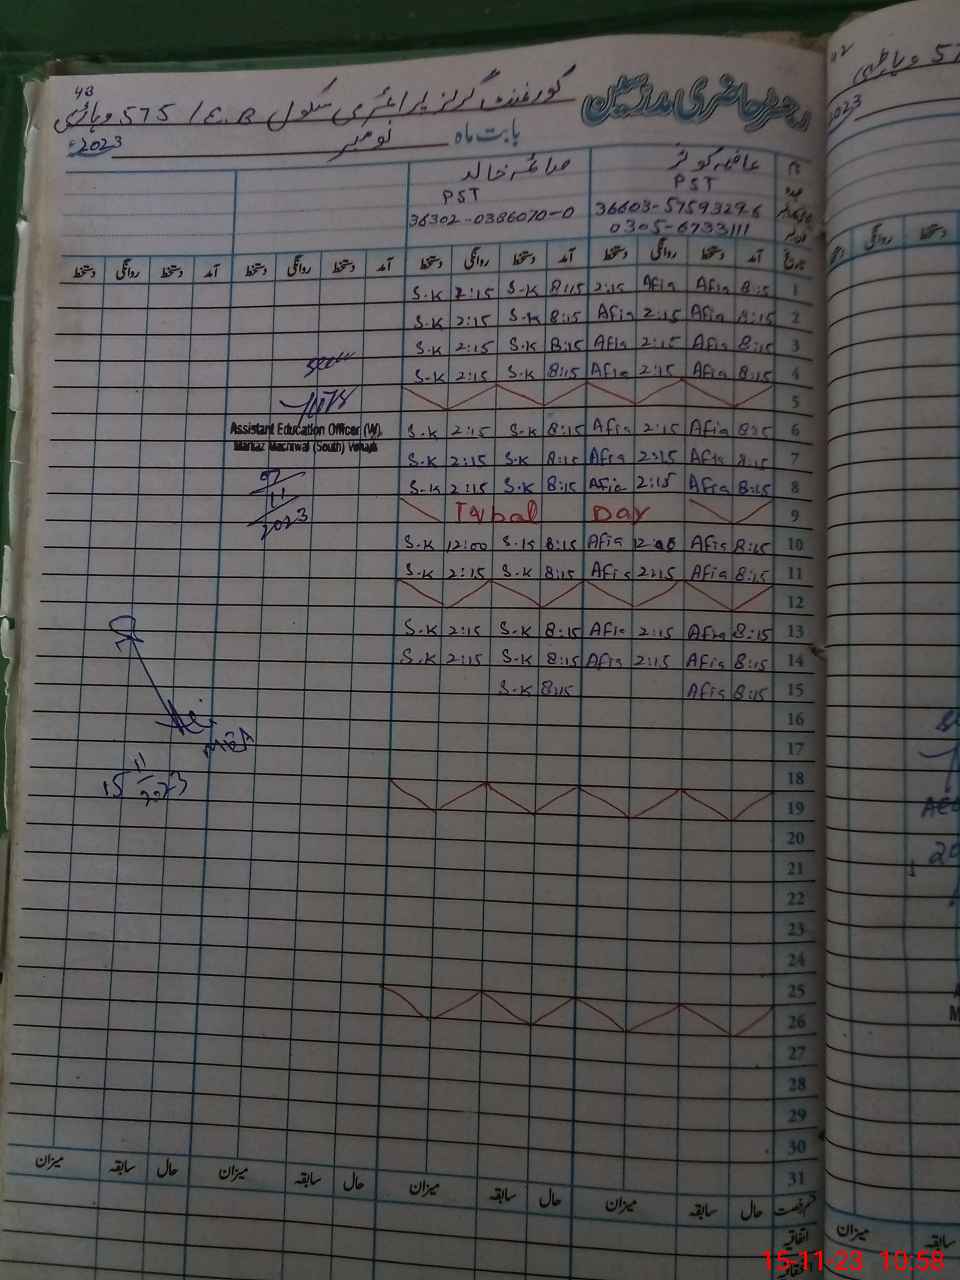 43
رجسٹر حاضری ملازمین
گورنمنٹ گرلز پرائمری سکول 575/E.B وہاڑی
بابت ماہ نومبر 2023ء
نام عافیہ کوثر صائمہ خالد
عہدہ PST PST
36603-5759329-6 36302-0386070-0
0305-6733111
تاریخ آمد دستخط روانگی دستخط آمد دستخط روانگی دستخط آمد دستخط روانگی دستخط آمد دستخط روانگی دستخط
1 8:15 Afia Afia 2:15 8:15 S.K 2:15 S.K
2 8:15 Afia 2:15 Afia 8:15 S.K 2:15 S.K
3 8:15 Afia 2:15 Afia 8:15 S.K 2:15 S.K
4 8:15 Afia 2:15 Afia 8:15 S.K 2:15 S.K
5
6 8:15 Afia 2:15 Afia 8:15 S.K 2:15 S.K
7 8:15 Afia 2:15 Afia 8:15 S.K 2:15 S.K
8 8:15 Afia 2:15 Afia 8:15 S.K 2:15 S.K
9 Iqbal Day
10 8:15 Afia 12:00 Afia 8:15 S.K 12:00 S.K
11 8:15 Afia 2:15 Afia 8:15 S.K 2:15 S.K
12
13 8:15 Afia 2:15 Afia 8:15 S.K 2:15 S.K
14 8:15 Afia 2:15 Afia 8:15 S.K 2:15 S.K
15 8:15 Afia 8:15 S.K
16
17
18
19
20
21
22
23
24
25
26
27
28
29
30
31
Assistant Education Officer (W),
Markaz Machiwal (South) Vehari
07
11
2023
MEA
15
11
2023
قسم رخصت حال سابقہ میزان حال سابقہ میزان حال سابقہ میزان حال سابقہ میزان
اتفاقیہ
2023
دستخط روانگی
میزان سابقہ
15-11-23 10:58